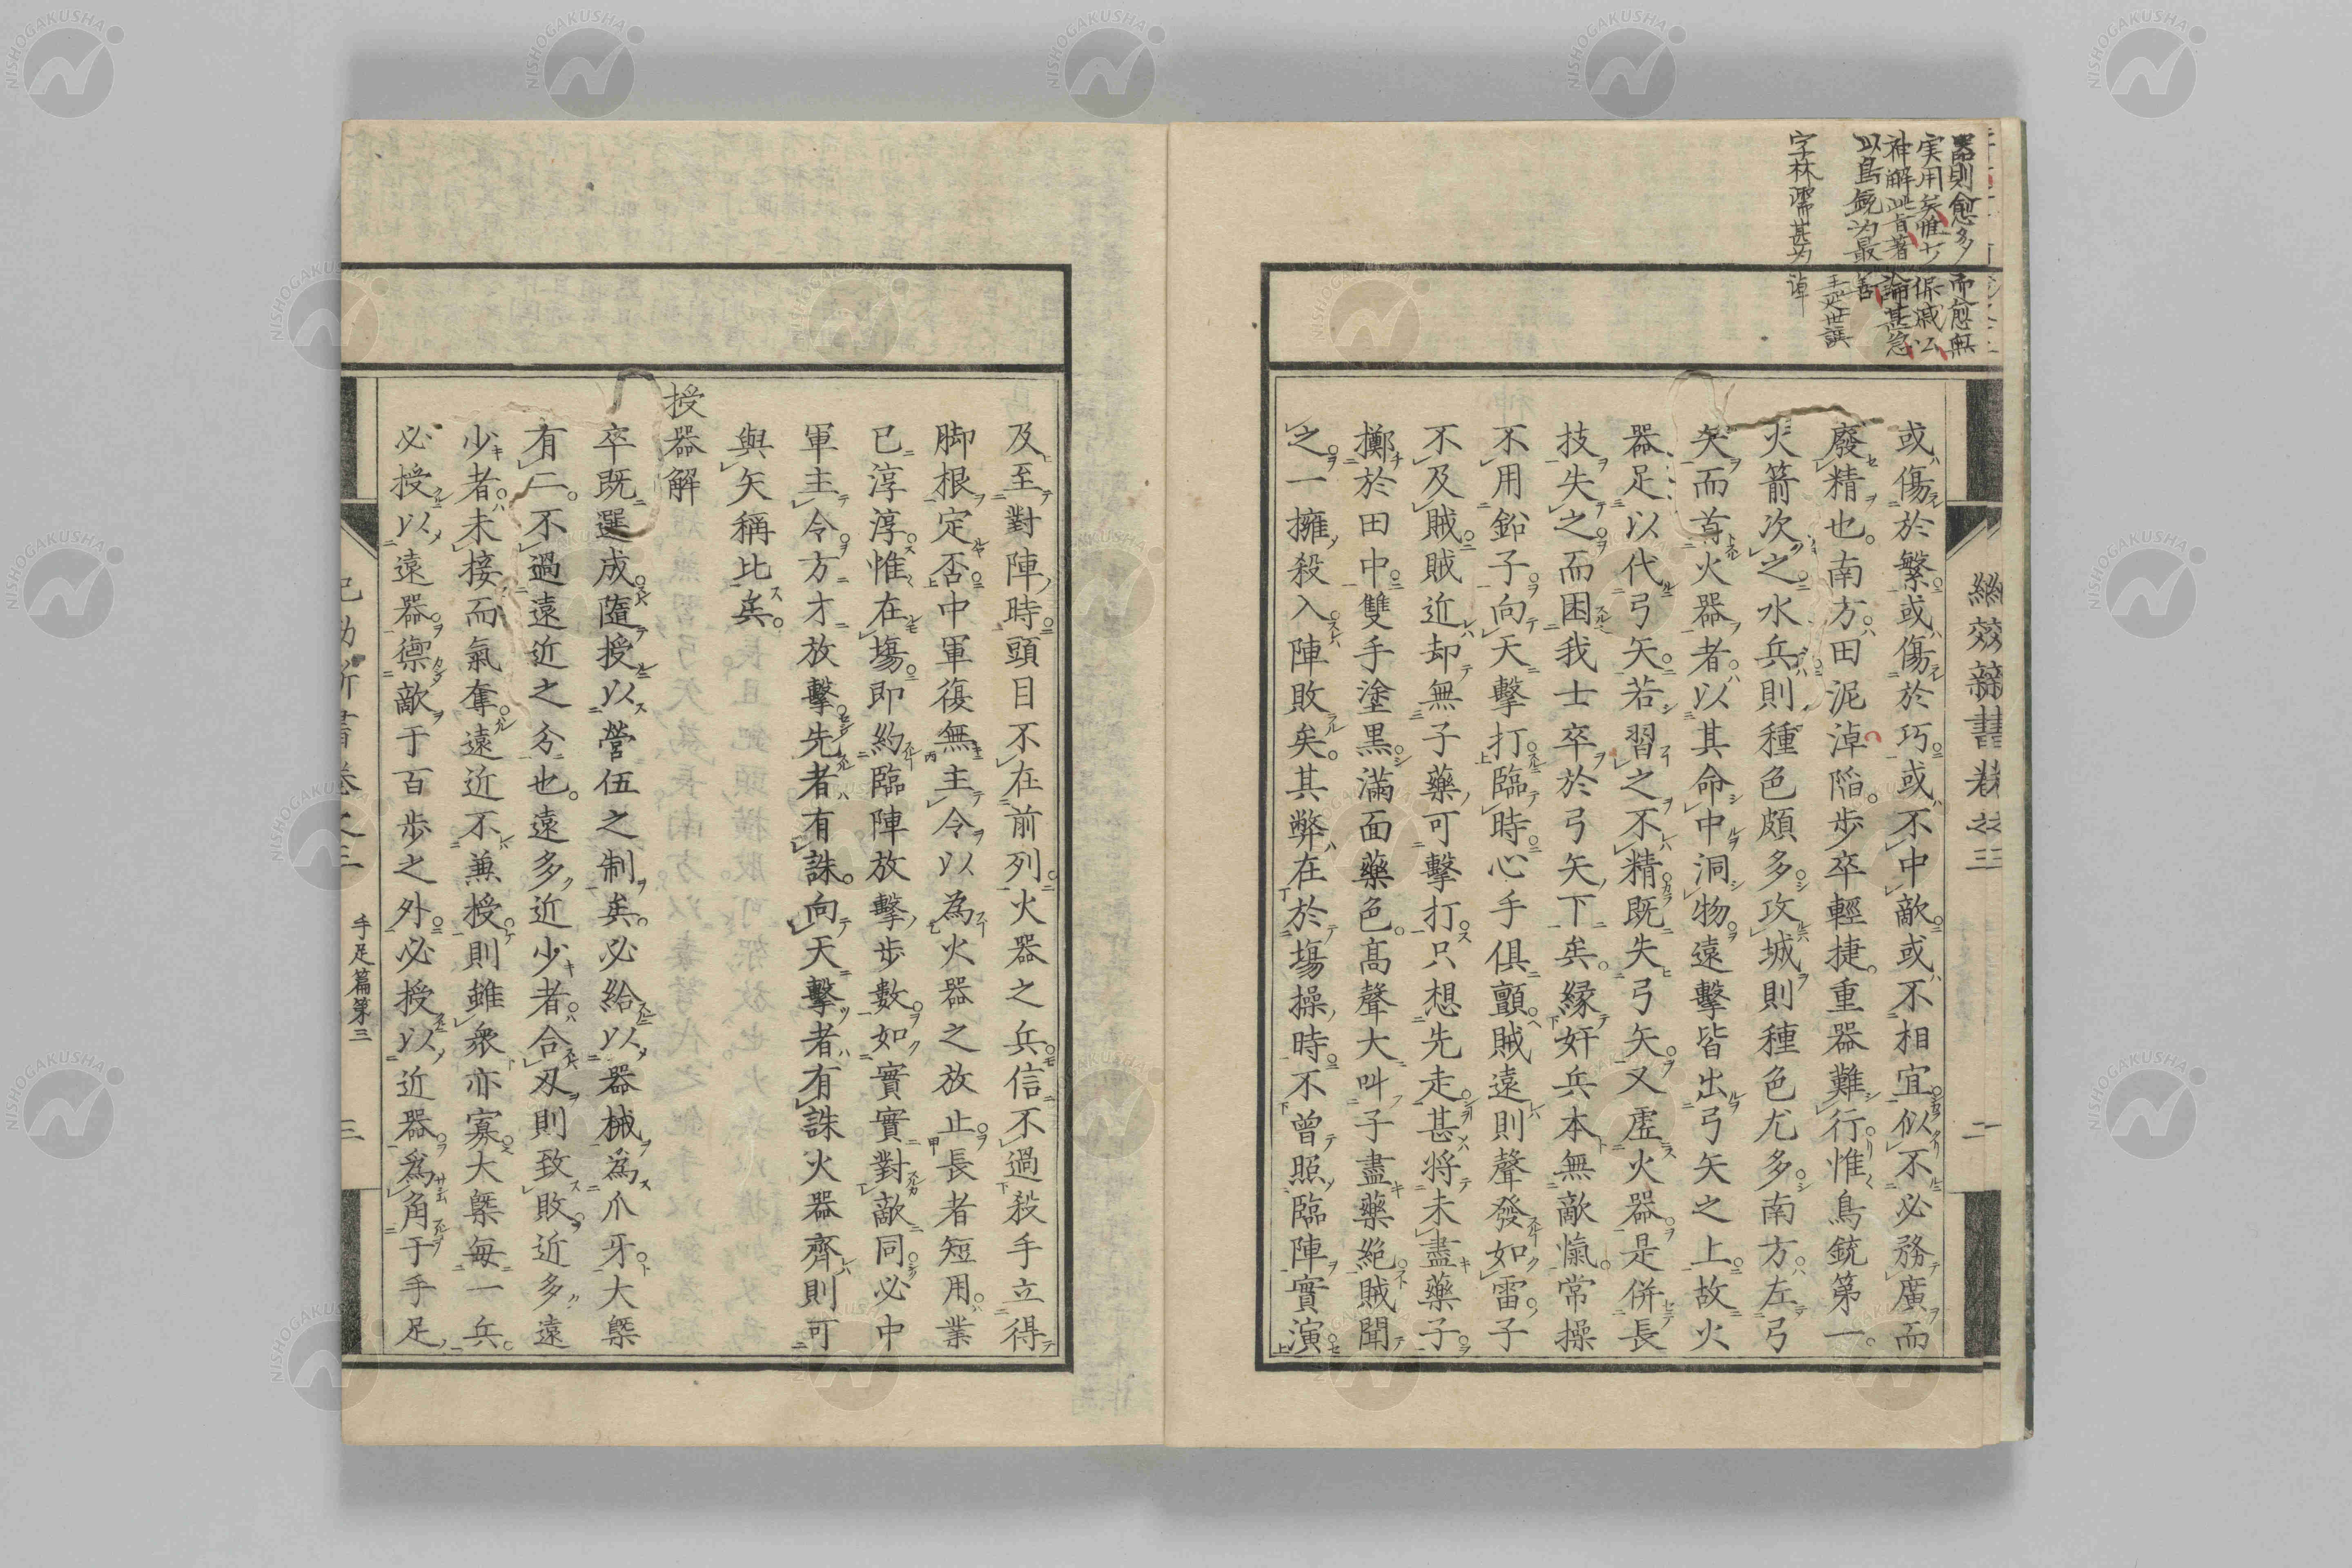 器則愈多而愈無
実用矣惟少保戚公
神解此旨著論甚急
以鳥銃为最善
字林濘甚为淖
紀效新書卷之三
二
或傷於繁或傷於巧或不中敵或不相宜似不必務廣而
廢精也。南方田泥淖陷。步卒輕捷。重器難行惟鳥銃第一。
火箭次之水兵則種色頗多攻城則種色尤多南方左弓
矢而首火器者以其命中洞物遠擊皆出弓矢之上故火
器足以代弓矢若習之不精既失弓矢又虛火器是併長
技失之而困我士卒於弓矢下矣。緣奸兵本無敵愾。常操
不用鉛子向天擊打臨時心手俱顫賊遠則聲發如雷子
不及賊賊近却無子藥可擊打只想先走甚將未盡藥子
擲於田中雙手塗黑滿面藥色。高聲大叫子盡藥絕賊聞
之一擁殺入陣敗矣。其弊在於塲操時不曾照臨陣實演
及至對陣時頭目不在前列火器之兵信不過殺手立得
脚根定否中軍復無主令以為火器之放止長者短用業
已淳淳惟在塲即約臨陣放擊步數如實實對敵同必中
軍主令方才放擊先者有誅。向天擊者有誅火器齊則可
與矢稱比矣。
授器解
卒既選成隨授以營伍之制矣。必給以器械為爪牙大槩
有二。不過遠近之分也。遠多近少者合刃則致敗近多遠
少者未接而氣奪遠近不兼授則雖衆亦寡大槩每一兵。
必授以遠器禦敵于百步之外必授以近器為角于手足
手足篇第三
三